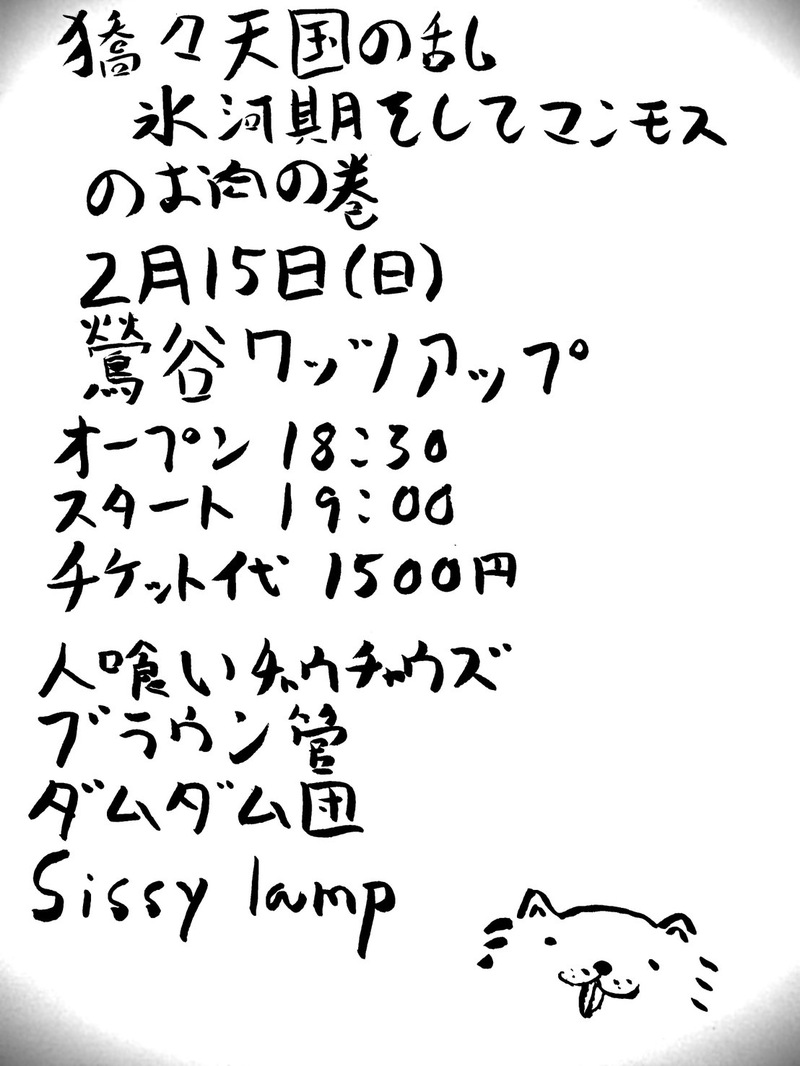 獢々天国の乱
氷河期をしてマンモス
のお肉の巻
2月15日(日)
鶯谷ワッツアップ
オープン 18:30
スタート 19:00
チケット代 1500円
人喰いチャウチャウズ
ブラウン管
ダムダム団
Sissy lamp